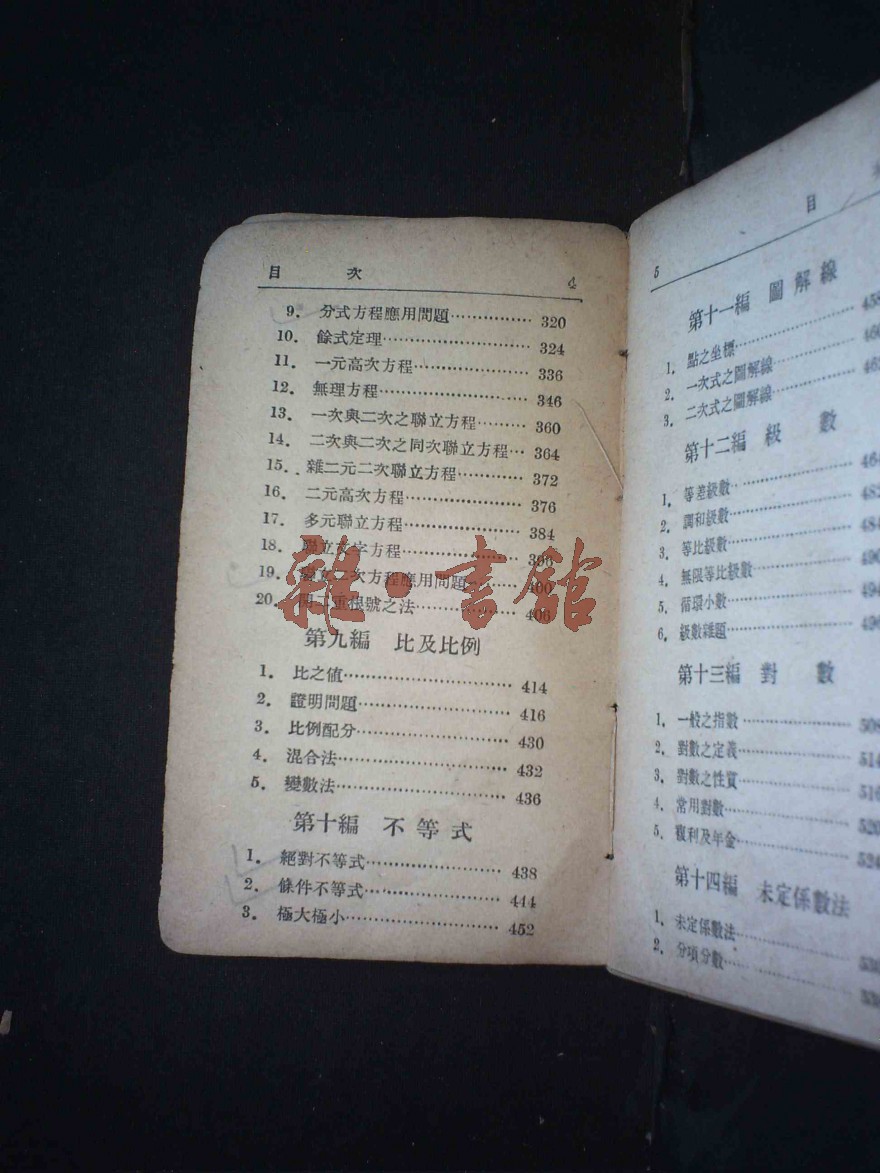 目 次 4
9. 分式方程應用問題 320
10. 餘式定理 324
11. 一元高次方程 336
12. 無理方程 346
13. 一次與二次之聯立方程 360
14. 二次與二次之同次聯立方程 364
15. 雜二元二次聯立方程 372
16. 二元高次方程 376
17. 多元聯立方程 384
18. 聯立文字方程 396
19. 聯立二次方程應用問題 400
20. 開二重根號之法 406
雜·書館
第九編 比及比例
1. 比之值 414
2. 證明問題 416
3. 比例配分 430
4. 混合法 432
5. 變數法 436
第十編 不等式
1. 絕對不等式 438
2. 條件不等式 444
3. 極大極小 452
5 目
第十一編 圖解線
1. 點之坐標 458
2. 一次式之圖解線 460
3. 二次式之圖解線 462
第十二編 級數
1. 等差級數 464
2. 調和級數 482
3. 等比級數 484
4. 無限等比級數 490
5. 循環小數 494
6. 級數雜題 496
第十三編 對數
1. 一般之指數 508
2. 對數之定義 514
3. 對數之性質 516
4. 常用對數 520
5. 複利及年金 524
第十四編 未定係數法
1. 未定係數法
2. 分項分數